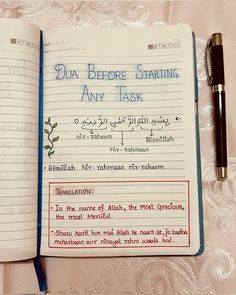 DUA BEFORE STARTING
ANY TASK
بِسْمِ اللهِ الرَّحْمٰنِ الرَّحِيْمِ
nir-raheem
Bismillah
hir-rahmaan
• Bismillah hir-rahmaan nir-raheem
TRANSLATION:
• In the name of Allah, the Most Gracious,
the most Merciful.
• Shuru karti hun mai Allah ke naam se, jo bada
meherbaan aur nihayat rehm waala hai.